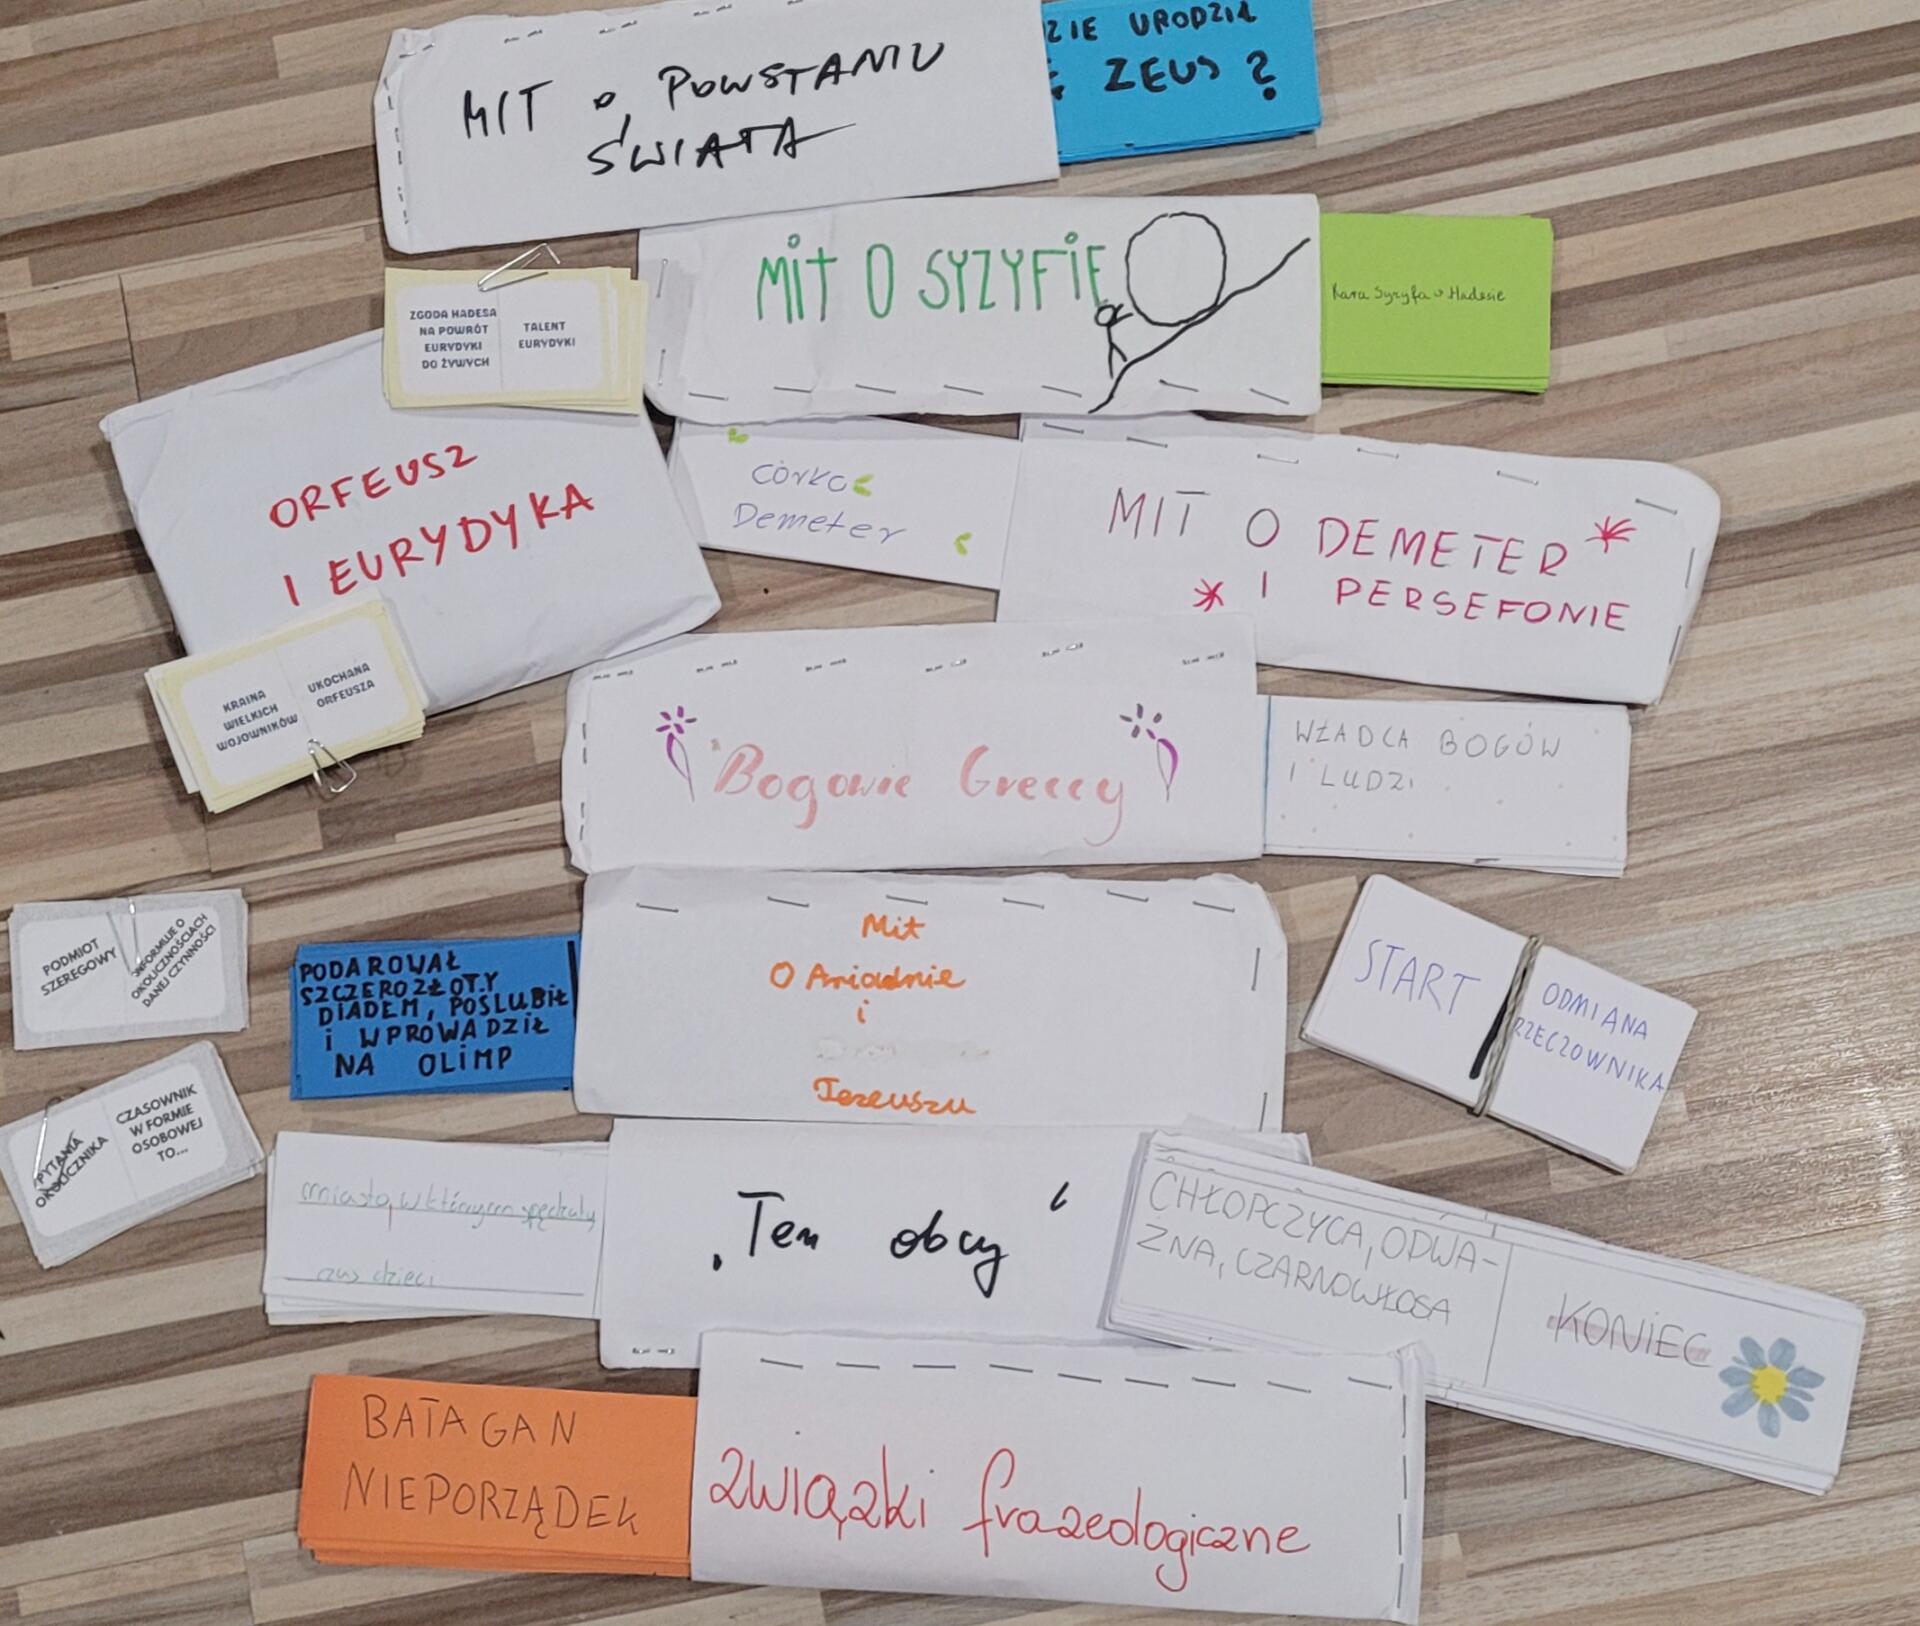 MIT O POWSTANIU
ŚWIATA
ZIE URODZIŁ
Ę ZEUS?
MIT O SYZYFIE
Kara Syzyfa w Hadesie
ZGODA HADESA
NA POWRÓT
EURYDYKI
DO ŻYWYCH
TALENT
EURYDYKI
ORFEUSZ
I EURYDYKA
CÓRKA
Demeter
MIT O DEMETER
I PERSEFONIE
KRAINA
WIELKICH
WOJOWNIKÓW
UKOCHANA
ORFEUSZA
Bogowie Greccy
WŁADCA BOGÓW
I LUDZI
PODMIOT
SZEREGOWY
INFORMUJE O
OKOLICZNOŚCIACH
DANEJ CZYNNOŚCI
PODAROWAŁ
SZCZEROZŁOTY
DIADEM, POŚLUBIŁ
i WPROWADZIŁ
NA OLIMP
Mit
O Ariadnie
i
Tezeuszu
START
ODMIANA
RZECZOWNIKA
PYTANIA
OKOLICZNIKA
CZASOWNIK
W FORMIE
OSOBOWEJ
TO...
miasto, w którym spędzały
czas dzieci
"Ten obcy"
CHŁOPCZYCA, ODWA-
ZNA, CZARNOWŁOSA
KONIEC
BAŁAGAN
NIEPORZĄDEK
związki frazeologiczne